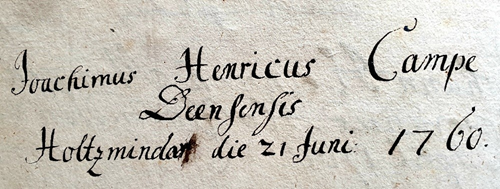 Joachimus Henricus Campe
Deensensis
Holtzmindae die 21 Juni 1760.